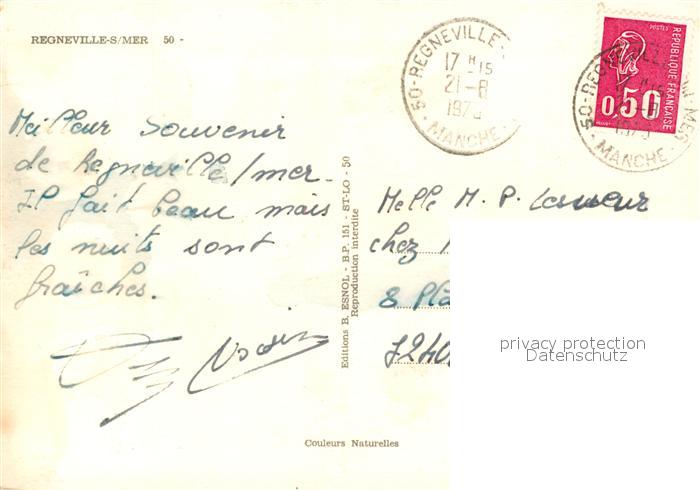 REGNEVILLE-S/MER 50 -
Meilleur Souvenir
de Regneville/mer.
Il fait beau mais
les nuits sont
fraîches.
50-REGNEVILLE-
17 H 15
21-8
197
MANCHE
POSTES
REPUBLIQUE FRANÇAISE
0,50
50-REGNEVILLE MER
MANCHE
Editions B. ESNOL - B.P. 151 - ST-LO - 50
Reproduction interdite
Melle M. P. Lesueur
chez
8 Pla
7240
privacy protection
Datenschutz
Couleurs Naturelles